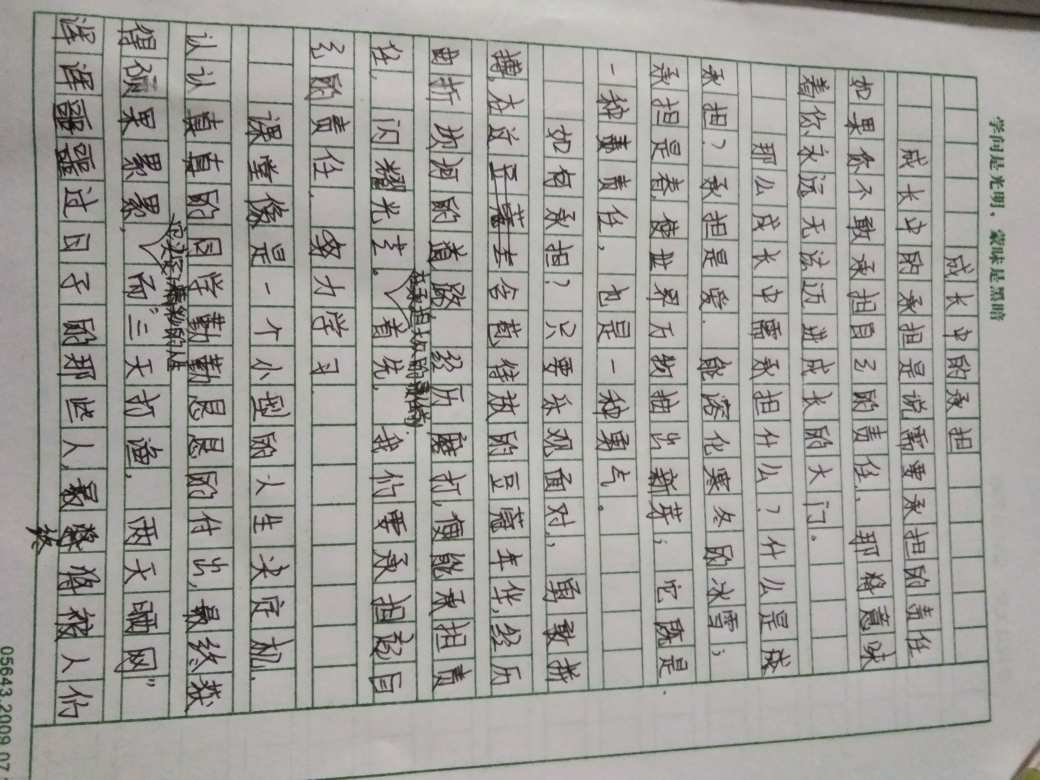 学问是光明，蒙昧是黑暗
成长中的承担
成长中的承担是说需要承担的责任
如果你不敢承担自己的责任、那将意味
着你永远无法迈进成长的大门。
那么成长中需承担什么？什么是成
承担？承担是爱．能溶化寒冬的冰雪；
承担是春，使世界万物抽出新芽；它既是
一种责任，也是一种勇气。
如何承担？只要乐观面对，勇敢拼
搏，在这豆蔻去含苞待放的豆蔻年华，经历
曲折坎坷的道路，经历磨打，便能承担责
任，闪耀光芒。首先，我们要承担起自
己的责任．努力学习．
课堂像是一个小型的人生决定机．
认认真真的同学勤勤恳恳的付出，最终获
得硕果累累，而"三天打渔，两天晒网"
浑浑噩噩过日子的那些人，最终将被人们
05643.2009.07